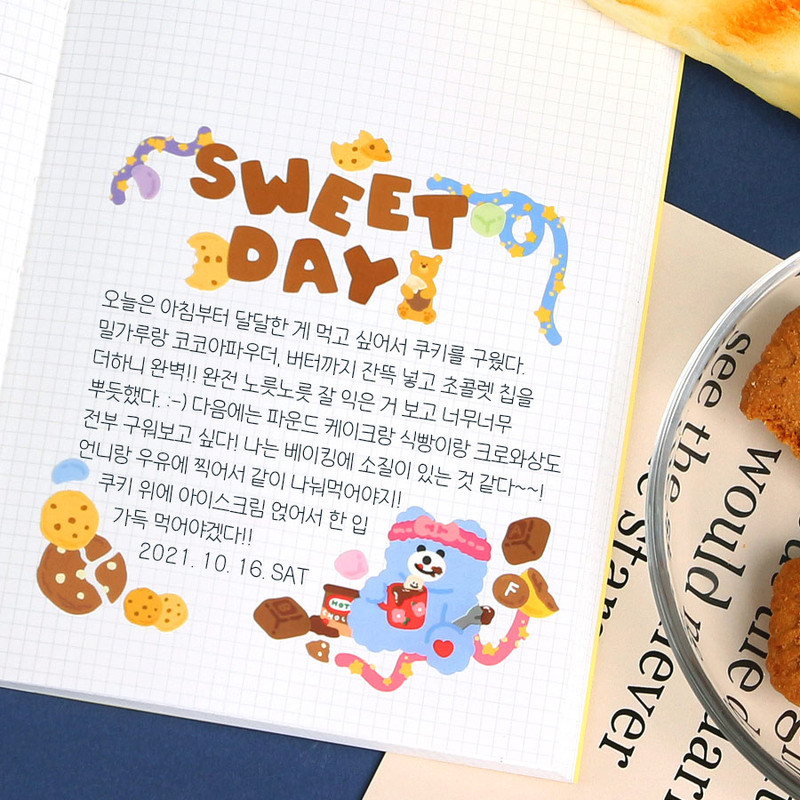 SWEET
DAY
오늘은 아침부터 달달한 게 먹고 싶어서 쿠키를 구웠다.
밀가루랑 코코아파우더, 버터까지 잔뜩 넣고 초콜렛 칩을
더하니 완벽!! 완전 노릇노릇 잘 익은 거 보고 너무너무
뿌듯했다. :-) 다음에는 파운드 케이크랑 식빵이랑 크로와상도
전부 구워보고 싶다! 나는 베이킹에 소질이 있는 것 같다~~!
언니랑 우유에 찍어서 같이 나눠먹어야지!
쿠키 위에 아이스크림 얹어서 한 입
가득 먹어야겠다!!
2021. 10. 16. SAT
HOT
F
see the
would
never